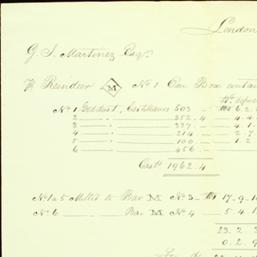 London
G. S. Martinez Esqr.
Reindeer M No 1 One Box contai
No 1 Gold dust, Castellanos 503
2 " " 352.4 4.4
3 " " 337 4.1
4 " " 214 2.7
5 " " 100 1.2
6 " " 456
Casts 1962.4
No 1 a 5 Melted to Bar M No 3 17.9.1
No 6 Bar M No 4 5.4.1
23.2.
0.2.9